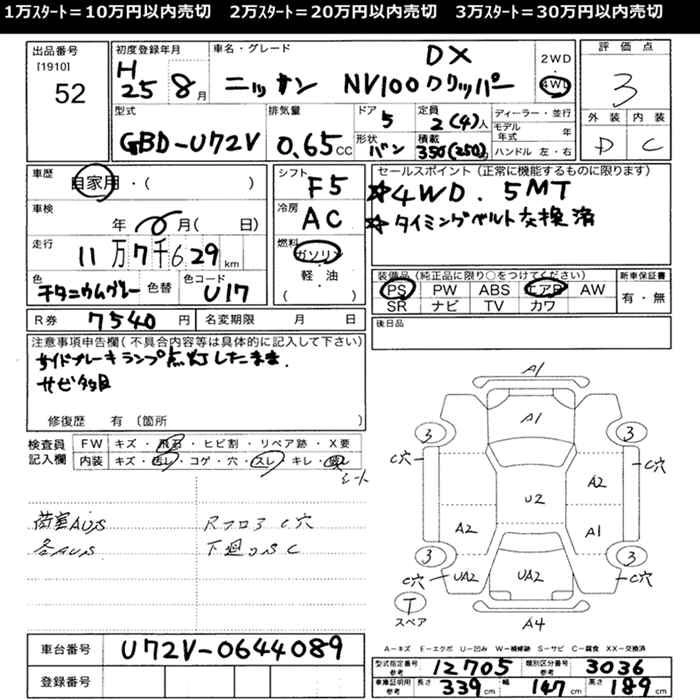 1万ｽﾀｰﾄ＝10万円以内売切　2万ｽﾀｰﾄ＝20万円以内売切　3万ｽﾀｰﾄ＝30万円以内売切
出品番号
[1910]
52
初度登録年月
H
25 8月
車名・グレード
DX
ニッサン NV100クリッパー
2WD
4WD
評価点
3
外装 内装
D C
型式
GBD-U72V
排気量
0.65cc
ドア
5
形状
バン
定員
2(4)人
積載
350(250)
ディーラー・並行
モデル年式 年
ハンドル 左・右
車歴
自家用・( )
車検
年 月( 日)
走行
11万7千629km
色
チタニウムグレー
色替
色コード
U17
シフト
F5
冷房
AC
燃料
ガソリン
軽・油
( )
セールスポイント (正常に機能するものに限ります)
☆4WD. 5MT
☆タイミングベルト交換済
装備品(純正品に限り○をつけてください)
PS PW ABS エアB AW
SR ナビ TV カワ
新車保証書
有・無
R券 7540円 名変期限 月 日
後日品
注意事項申告欄(不具合内容等は具体的に記入して下さい)
サイドブレーキランプ点灯したまま.
サビ多目
修復歴 有 〔箇所 〕
検査員
記入欄
FW キズ・飛石・ヒビ割・リペア跡・X要
内装 キズ・汚レ・コゲ・穴・スレ・キレ・
シート
荷室AUS
各AUS
Rフロア C穴
下廻りSC
A1
A1
3
3
C穴
C穴
A2
U2
A2
A1
3
3
C穴
UA2
UA2
UA2
C穴
T
スペア
A4
車台番号 U72V-0644089
登録番号
A－キズ E－エクボ U－凹み W－補修跡 S－サビ C－腐食 XX－交換済
型式指定番号
参考
12705
類別区分番号
参考
3036
車庫証明用
参考
長さ 339cm 幅 147cm 高さ 189cm